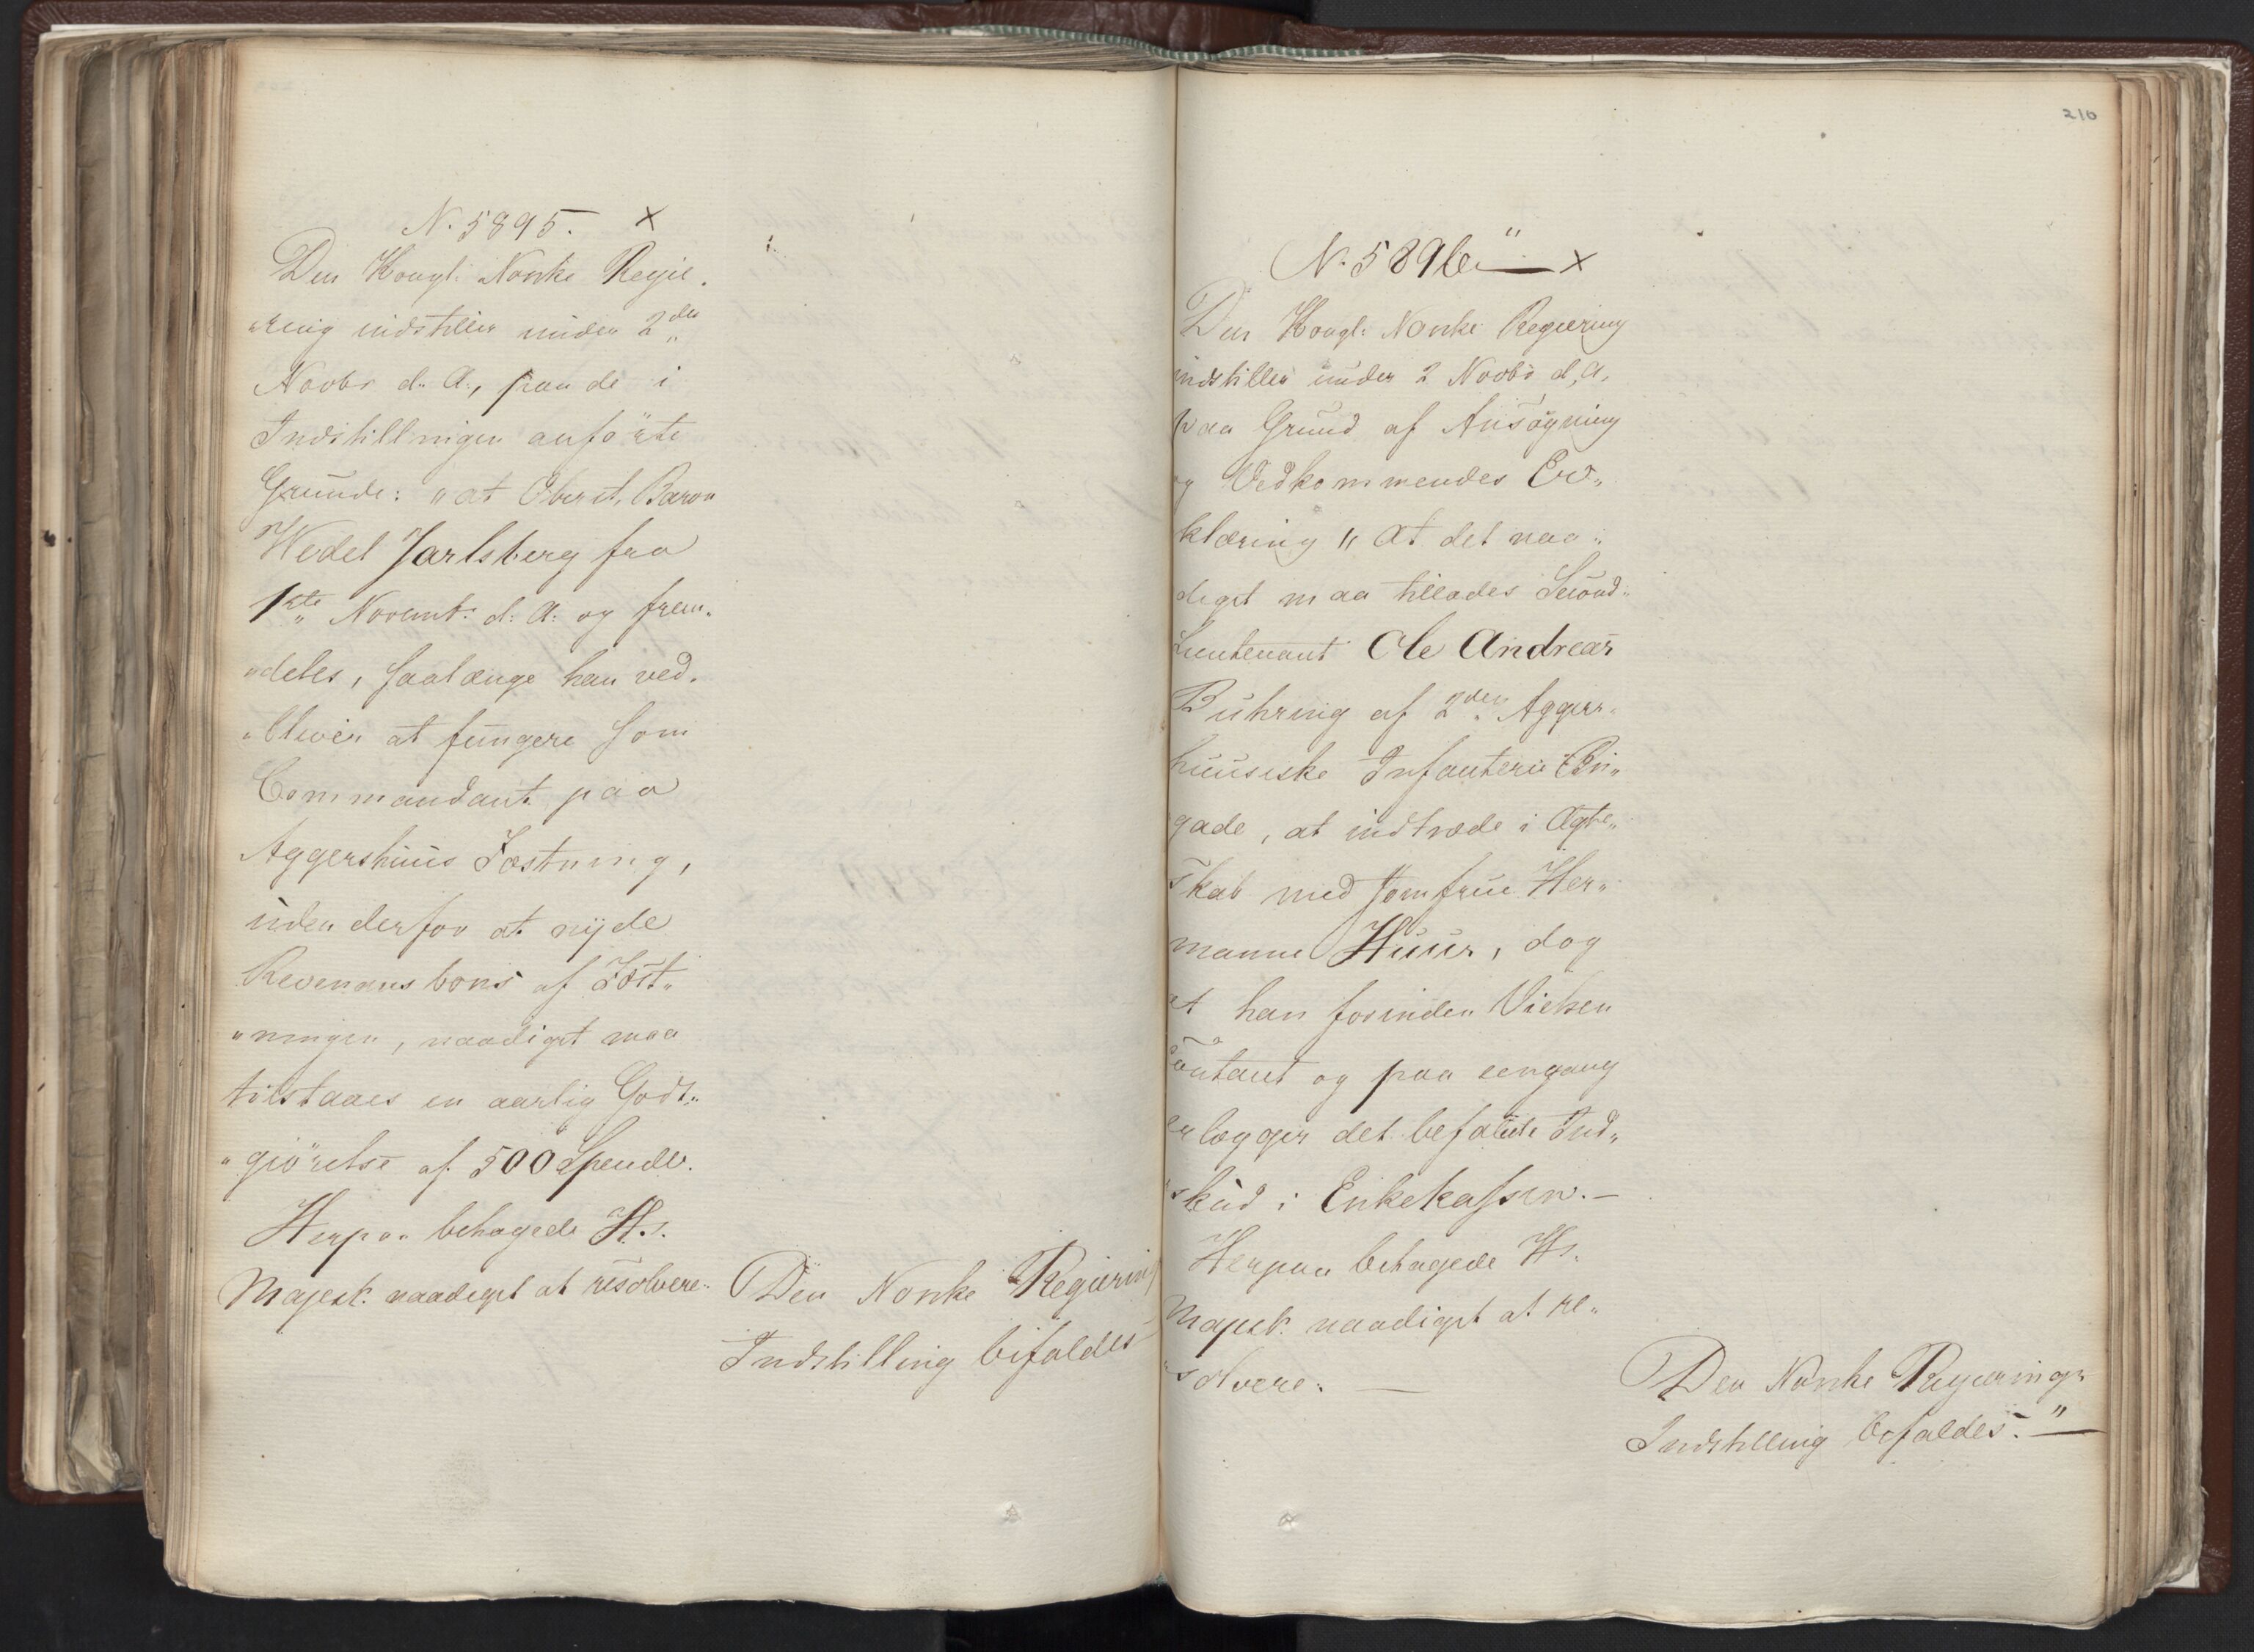 N. 5895. x
Den Kongl: Norske Regie.
„ring indstiller under 2den
Novbr d. A., paa de i
Indstillingen anførte
Grunde: „at Oberst, Baron
Wedel Jarlsberg fra
1ste Novemb: d: A: og frem.
„deles, saalænge han ved.
„bliver at fungere som
Commandant paa
Aggershuus Fæstning,
uden derfor at nyde
Revenans bons af Fæst„
„ningen, naadigst maa
tilstaaes en aarlig Godt„
„giörelse af 500 Specidlr.
Herpaa behagede Hs.
Majest. naadigst at resolvere:
Den Norske Regierings
Indstilling bifaldes
210
N. 5896 x
Den Kongl: Norske Regiering
indstiller under 2 Novbr d. A.
paa Grund af Ansögning
og Vedkommendes Er„
klæring „At det naa„
digst maa tillades Second„
Lieutenant Ole Andreas
Buhring af 2den Aggers„
huusiske Infanterie Bri„
gade, at indtræde i Ægte„
skab med Jomfrue Her„
manne Huus, dog
at han forinden Vielsen
contant og paa eengang
erlægger det befalede Ind„
„skud i Enkekassen. —
Herpaa behagede Hs.
Majest. naadigst at re„
„solvere: —
Den Norske Regierings
Indstilling bifaldes." —